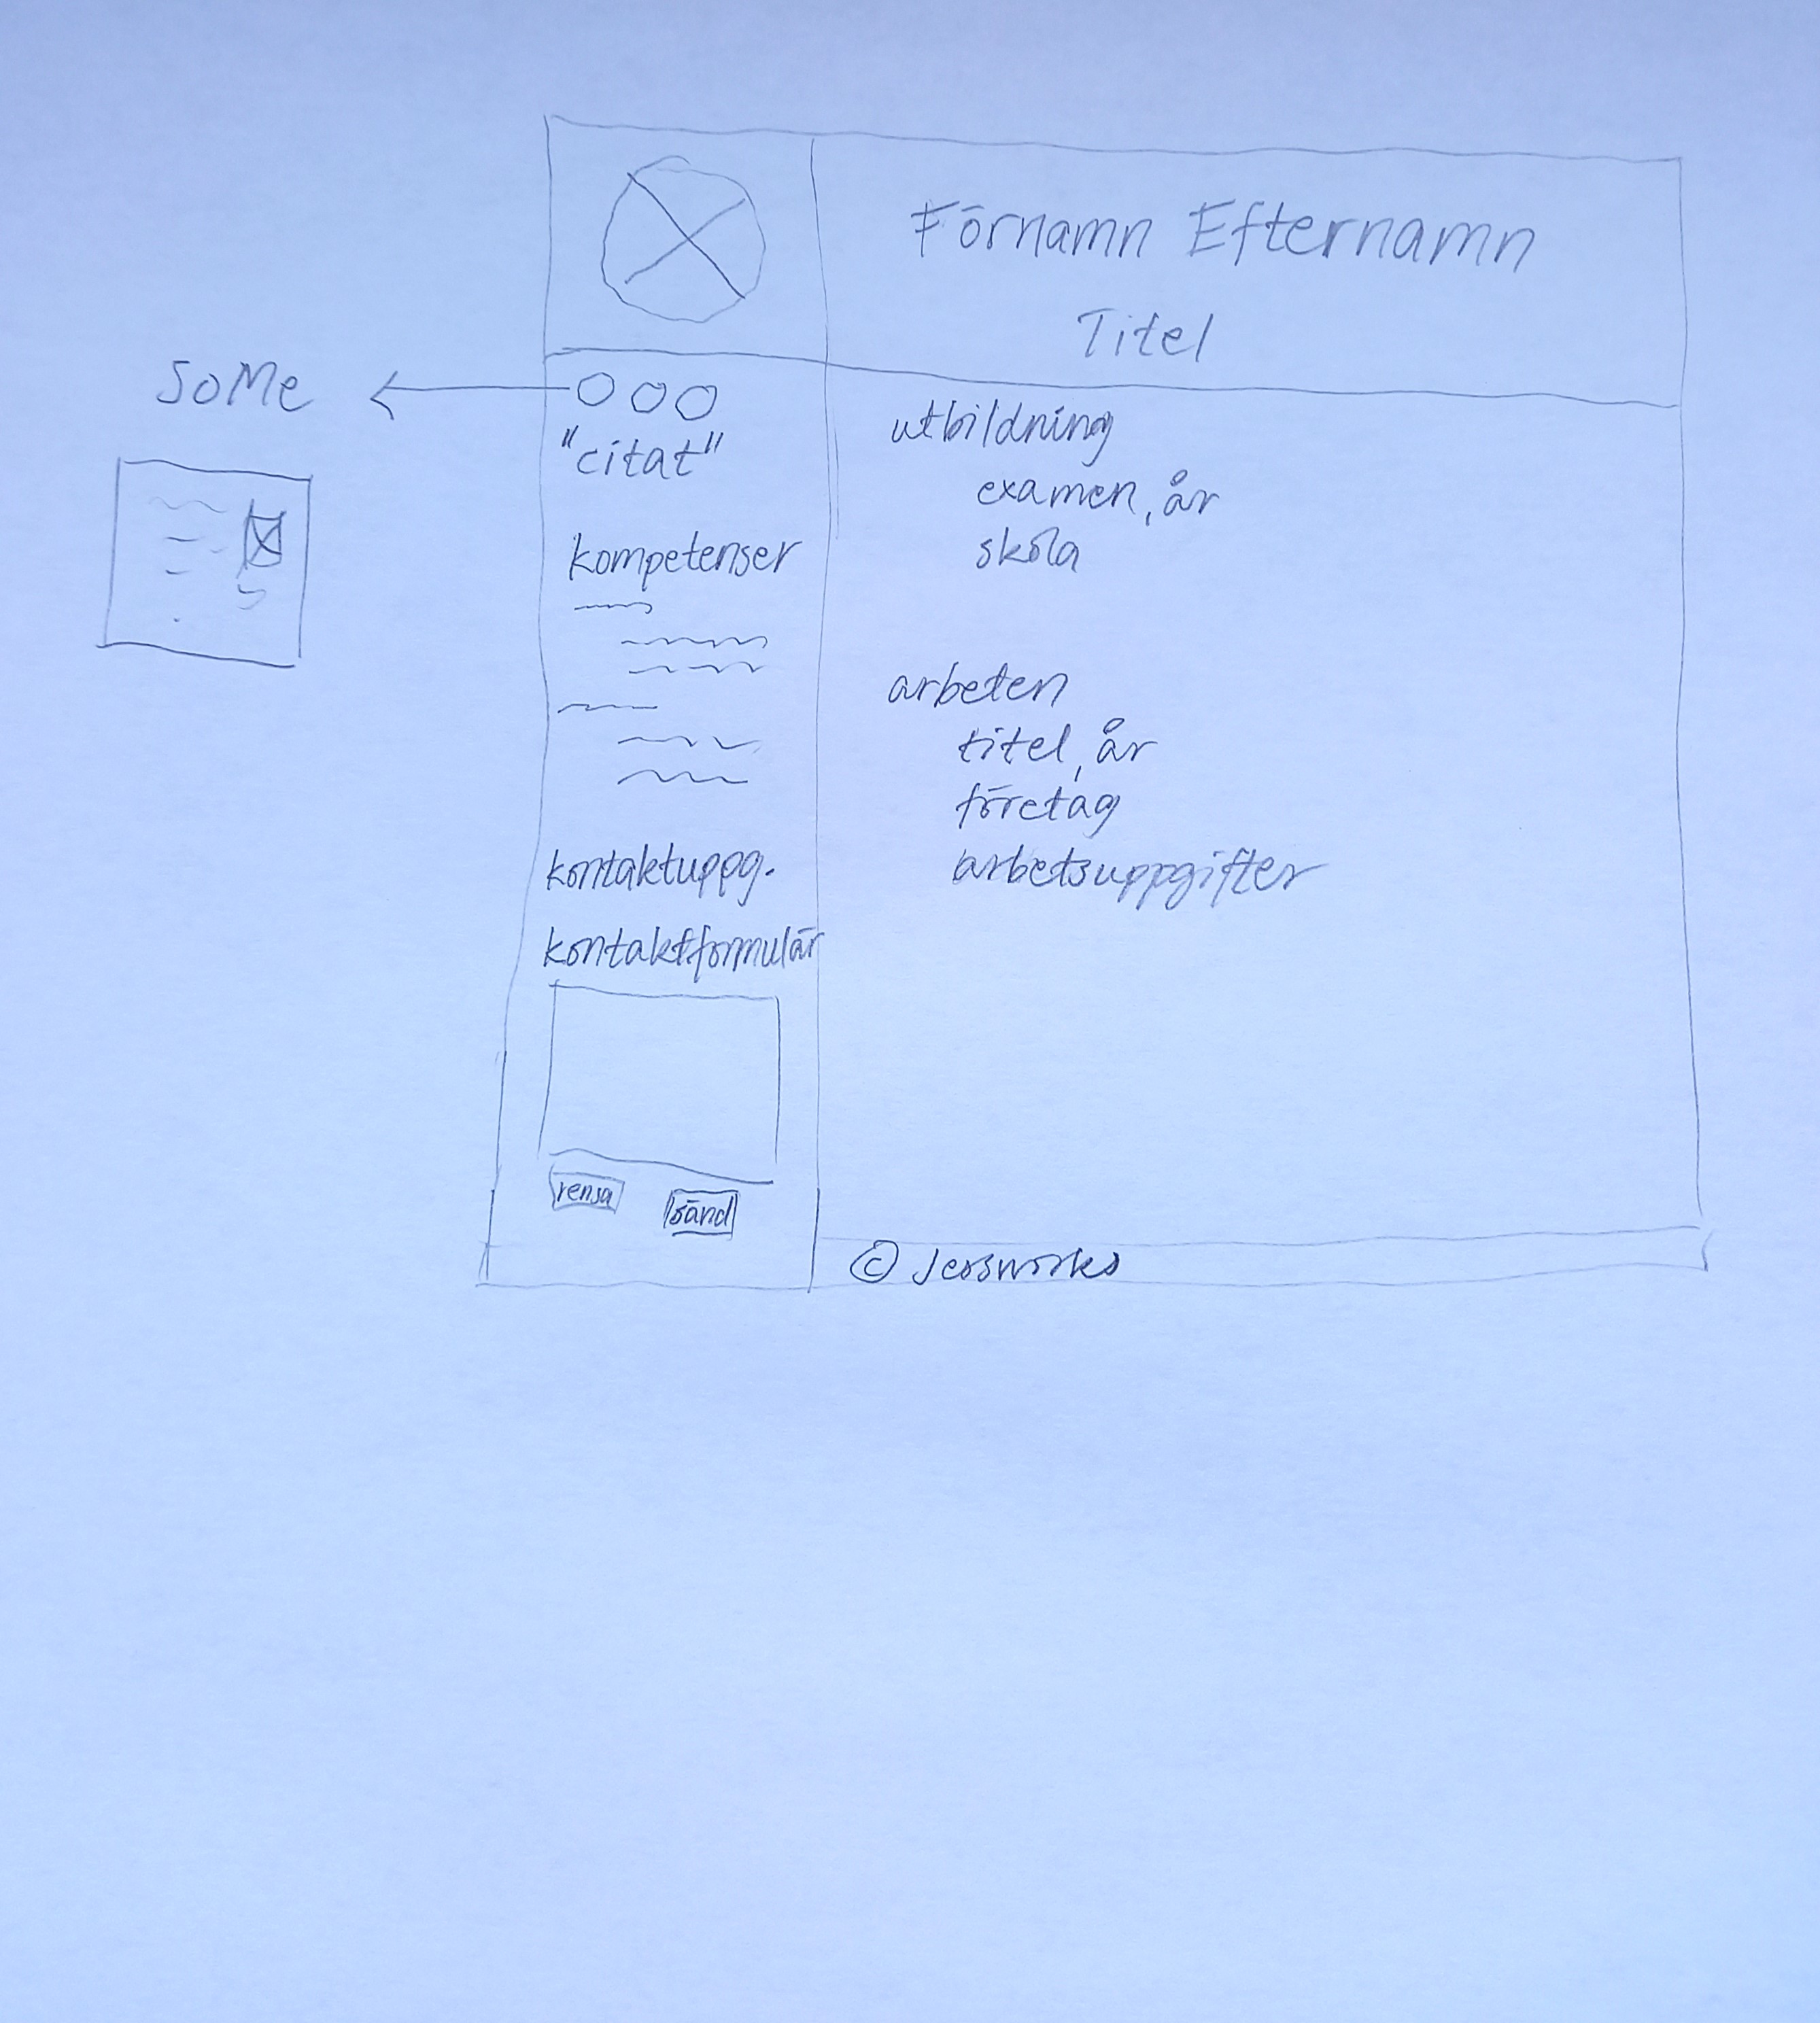 Förnamn Efternamn
Titel
SoMe
"citat"
kompetenser
kontaktuppg.
kontaktformulär
rensa
sänd
utbildning
examen, år
skola
arbeten
titel, år
företag
arbetsuppgifter
© Jessworks